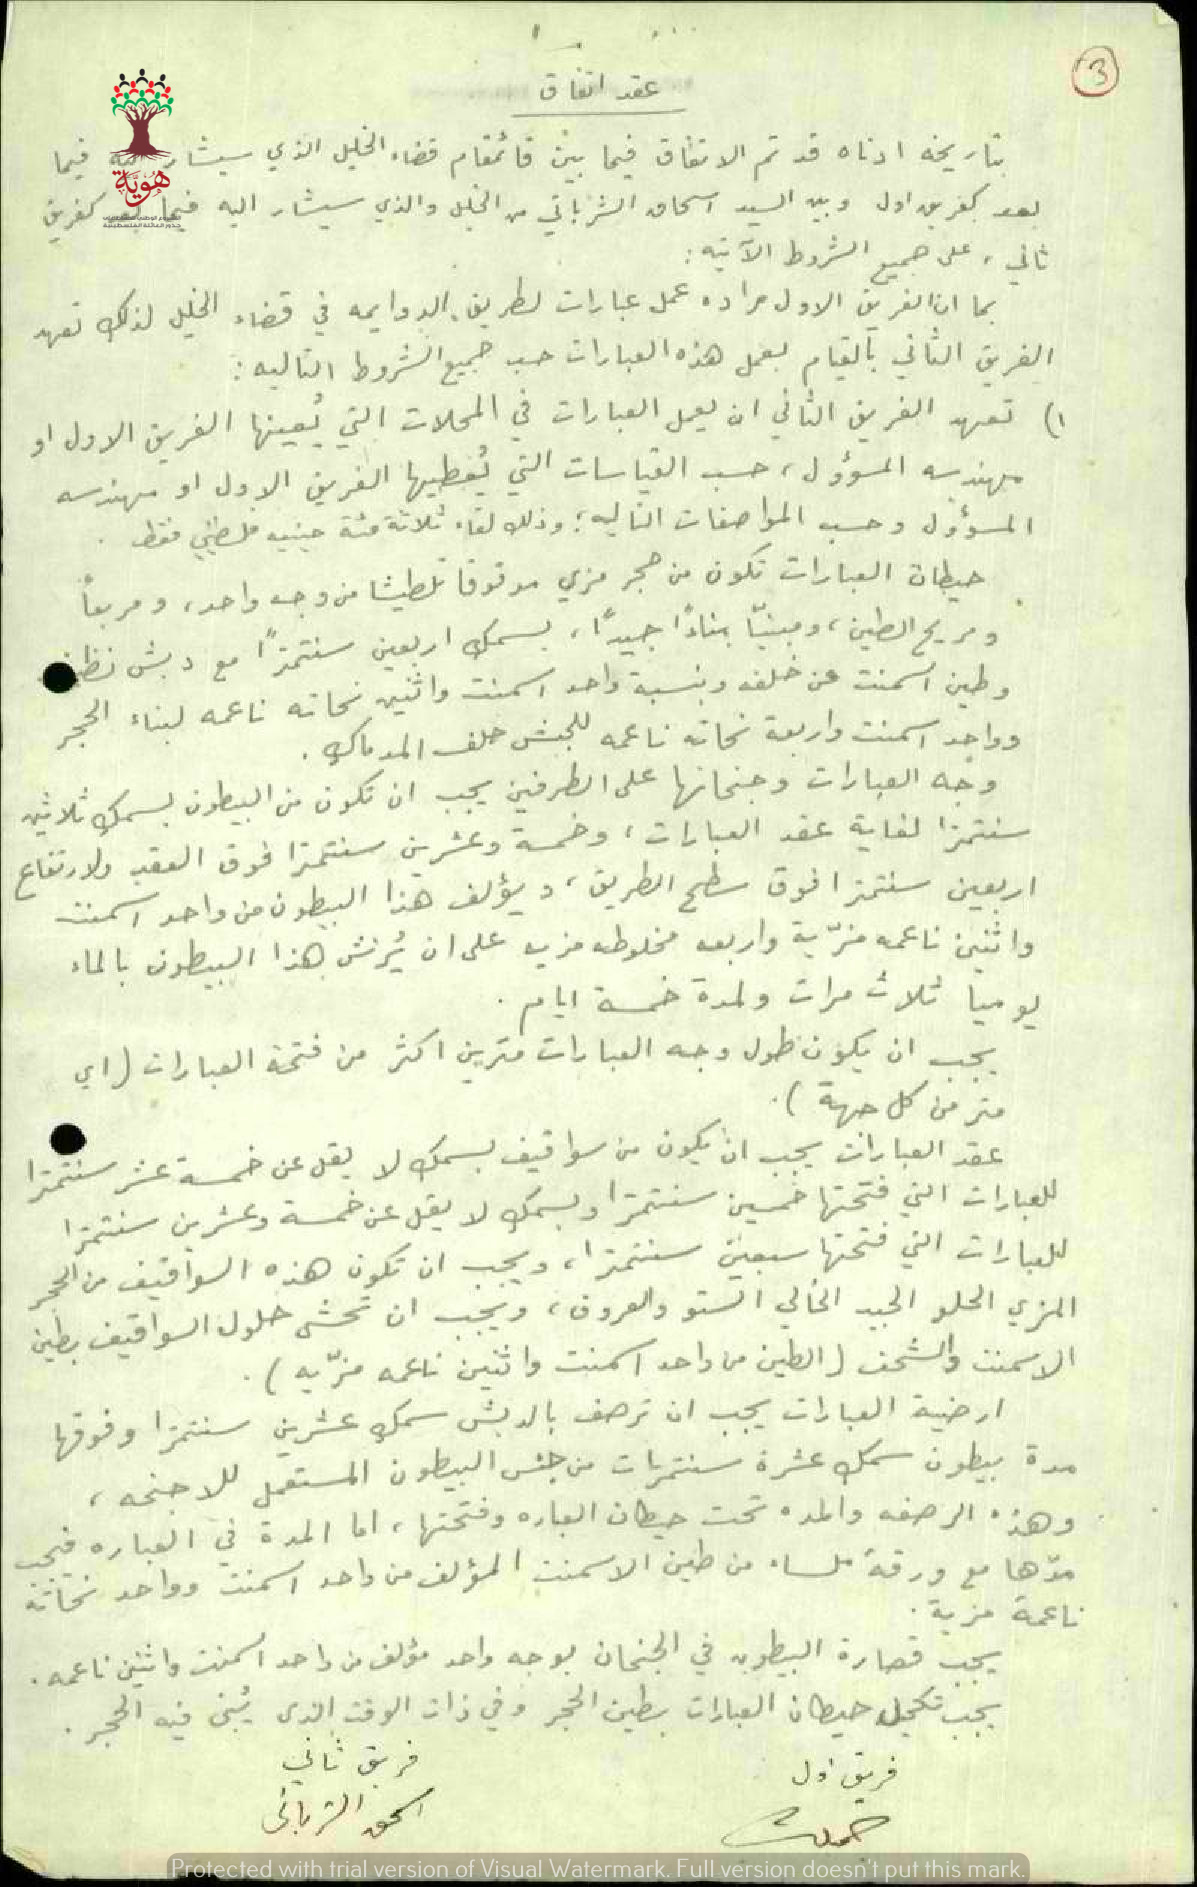 3
عقد اتفاق
بتاريخه ادناه قد تم الاتفاق فيما بين قائمقام قضاء الخليل الذي سيشار اليه فيما
بعد كفريق اول وبين السيد اسحاق الشرباتي من الخليل والذي سيشار اليه فيما بعد كفريق
ثاني، على جميع الشروط الآتية:
بما ان الفريق الاول مراده عمل عبارات لطريق الدوايمه في قضاء الخليل لذلك تعهد
الفريق الثاني بالقيام بعمل هذه العبارات حسب جميع الشروط التاليه:
١) تعهد الفريق الثاني ان يعمل العبارات في المحلات التي يُعينها الفريق الاول او
مهندسه المسؤول، حسب القياسات التي يُعطيها الفريق الاول او مهندسه
المسؤول وحسب المواصفات التاليه؛ وذلك لقاء ثلاثة مئة جنيه فلسطيني فقط.
حيطان العبارات تكون من حجر مزي مدقوقا تلطيشا من وجه واحد، ومربعاً
ومريح الطين، ومبنيّا بناءًا جيدًا، بسمك اربعين سنتمترًا مع دبش نظيف
وطين اسمنت من خلفه وبنسبة واحد اسمنت واثنين نحاته ناعمه لبناء الحجر
وواحد اسمنت واربعة نحاته ناعمه للدبش خلف المدماك.
وجه العبارات وجنحانها على الطرفين يجب ان تكون من البيطون بسمك ثلاثين
سنتمترا لغاية عقد العبارات، وخمسة وعشرين سنتمترا فوق العقد ولارتفاع
اربعين سنتمترا فوق سطح الطريق، ويؤلف هذا البيطون من واحد اسمنت
واثنين ناعمه مزّية واربعه مخلوطه مزيه على ان يُرش هذا البيطون بالماء
يوميا ثلاث مرات ولمدة خمسة ايام.
يجب ان يكون طول وجه العبارات مترين اكثر من فتحة العبارات (اي
متر من كل جهة).
عقد العبارات يجب ان يكون من سواقيف بسمك لا يقل عن خمسة عشر سنتمترا
للعبارات التي فتحتها خمسين سنتمترا وبسمك لا يقل عن خمسة وعشرين سنتمترا
للعبارات التي فتحتها سبعين سنتمترا، ويجب ان تكون هذه السواقيف من الحجر
المزي الحلو الجيد الخالي الستو والعروق، ويجب ان تحشى حلول السواقيف بطين
الاسمنت والشحف (الطين من واحد اسمنت واثنين ناعمه مزّيه).
ارضية العبارات يجب ان ترصف بالدبش سمك عشرين سنتمترا وفوقها
مدة بيطون سمك عشرة سنتمرات من جنس البيطون المستعمل للاجنحه،
وهذه الرصفه والمده تحت حيطان العباره وفتحتها، اما المدة في العباره فيجب
مدّها مع ورقة ملساء من طين الاسمنت المؤلف من واحد اسمنت وواحد نحاتة
ناعمة مزية.
يجب قصارة البيطون في الجنحان بوجه واحد مؤلف من واحد اسمنت واثنين ناعمه.
يجب تكحيل حيطان العبارات بطين الحجر وفي ذات الوقت الذي يُبنى فيه الحجر.
فريق اول
فريق ثاني
اسحق الشرباتي
هُوِيَّة
Protected with trial version of Visual Watermark. Full version doesn't put this mark.